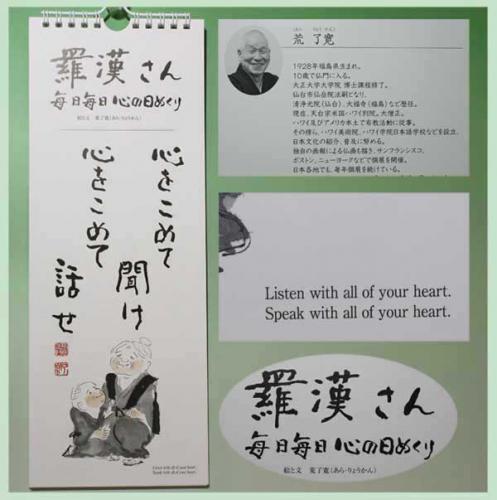 羅漢さん
毎日毎日心の日めくり
絵と文 荒了寛(あら・りょうかん)
心をこめて
聞け
心をこめて
話せ
Listen with all of your heart.
Speak with all of your heart.
あら りょうかん
荒 了寛
1928年福島県生まれ。
10歳で仏門に入る。
大正大学大学院 博士課程修了。
仙台市仙岳院法嗣となり、
清浄光院(仙台)、大福寺(福島)など歴住。
現在、天台宗米国・ハワイ別院。大僧正。
ハワイ及びアメリカ本土で布教活動に従事。
その傍ら、ハワイ美術院、ハワイ学院日本語学校などを設立、
日本文化の紹介、普及に努める。
独自の画報による仏画も描き、サンフランシスコ、
ボストン、ニューヨークなどで個展を開催。
日本各地でも、毎年個展を続けている。
Listen with all of your heart.
Speak with all of your heart.
羅漢さん
毎日毎日心の日めくり
絵と文 荒了寛(あら・りょうかん)